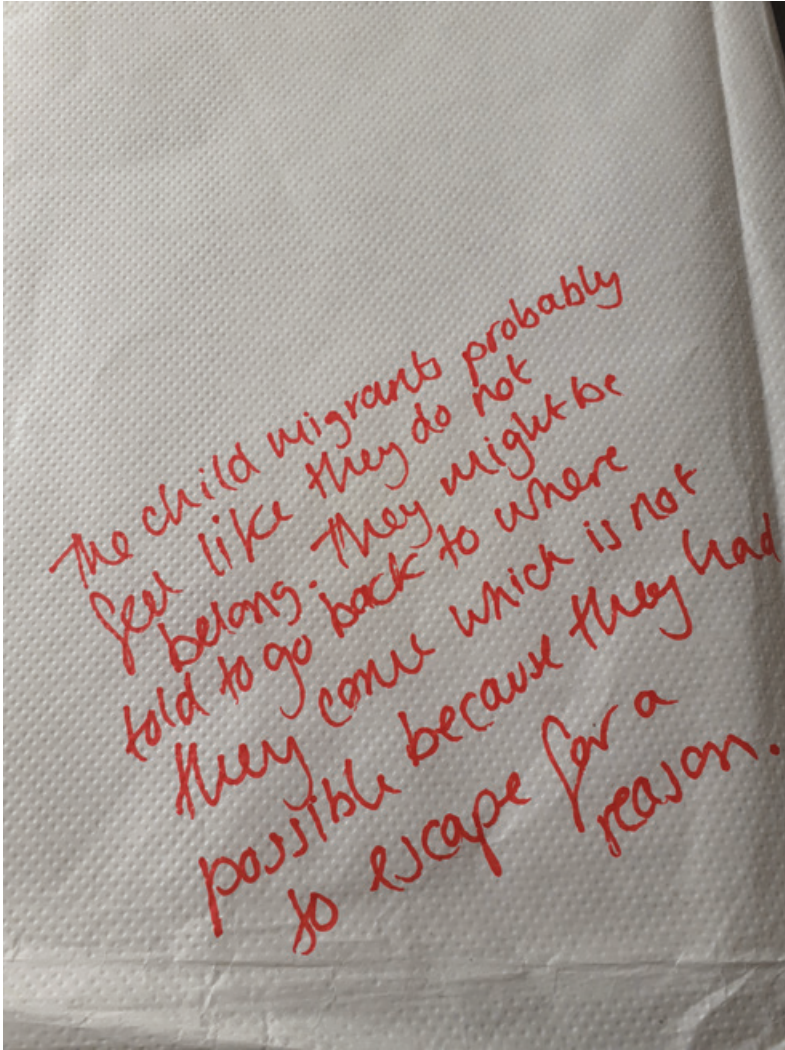 The child migrants probably
feel like they do not
belong. They might be
told to go back to where
they come which is not
possible because they had
to escape for a
reason.